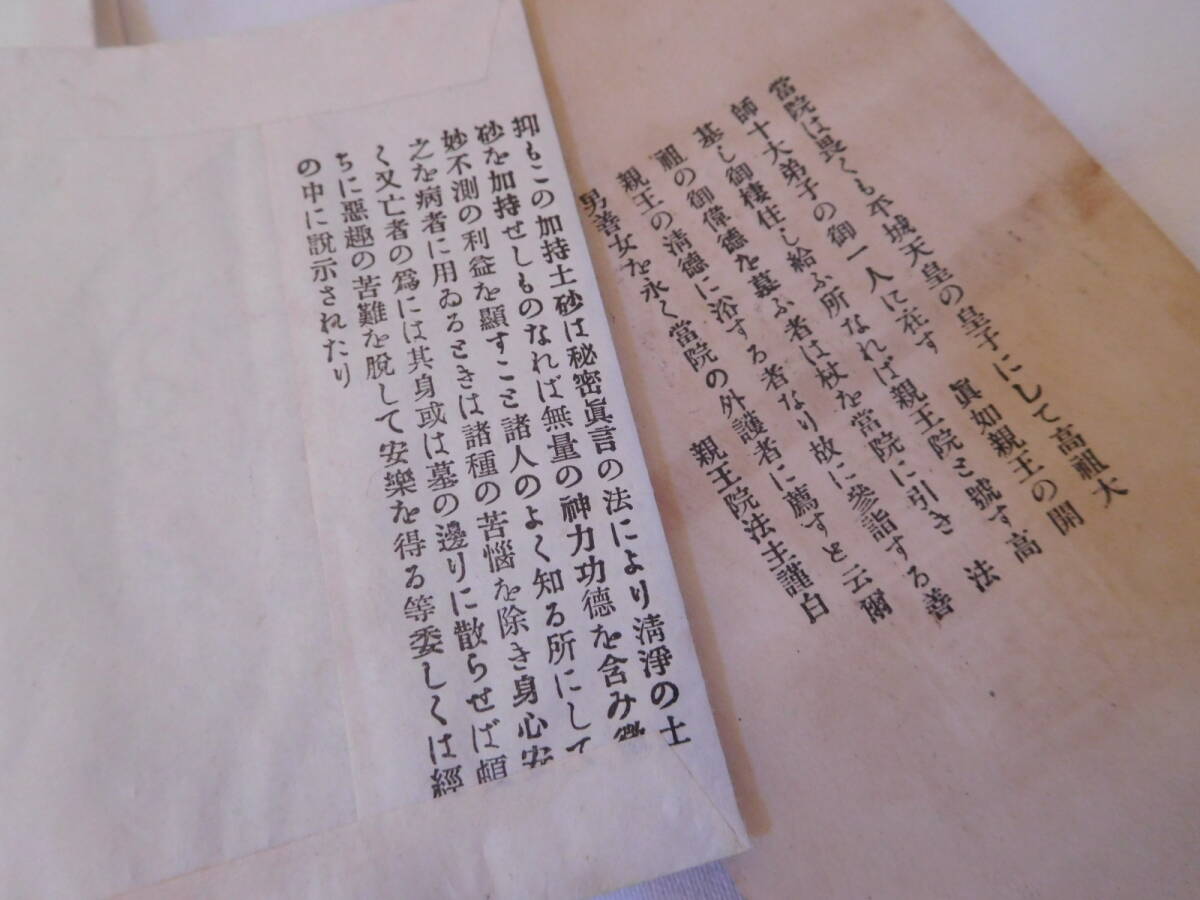 當院は畏くも平城天皇の皇子にして高祖大
師十大弟子の御一人に在す　眞如親王の開
基し御棲住し給ふ所なれば親王院と號す高
祖の御偉德を慕ふ者は杖を當院に引き　法
親王の清德に浴する者なり故に參詣する善
男善女を永く當院の外護者に薦すと云爾
親王院法主謹白
抑もこの加持土砂は秘密眞言の法により清淨の土
砂を加持せしものなれば無量の神力功德を含み
妙不測の利益を顯すこと諸人のよく知る所にして
之を病者に用ゐるときは諸種の苦惱を除き身心安
く又亡者の爲には其身或は墓の邊りに散らせば頓
ちに惡趣の苦難を脱して安樂を得る等委しくは經
の中に說示されたり